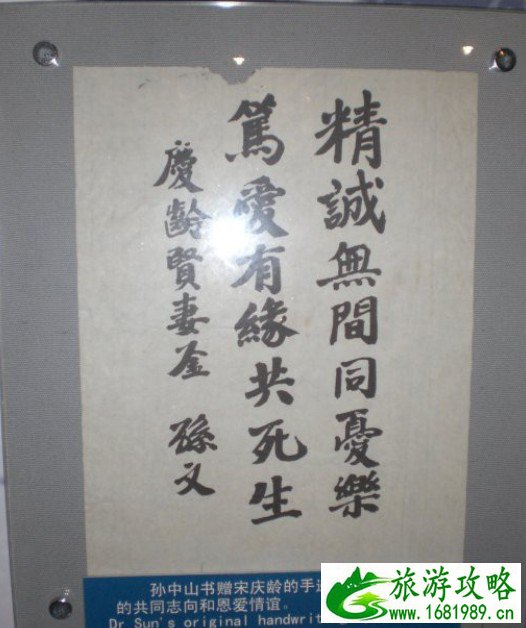 精誠無間同憂樂
篤愛有緣共死生
慶齡賢妻鉴 孫文
孙中山书赠宋庆龄的手
的共同志向和恩爱情谊。
Dr Sun's original handwrit
旅游攻略
www.1681989.cn